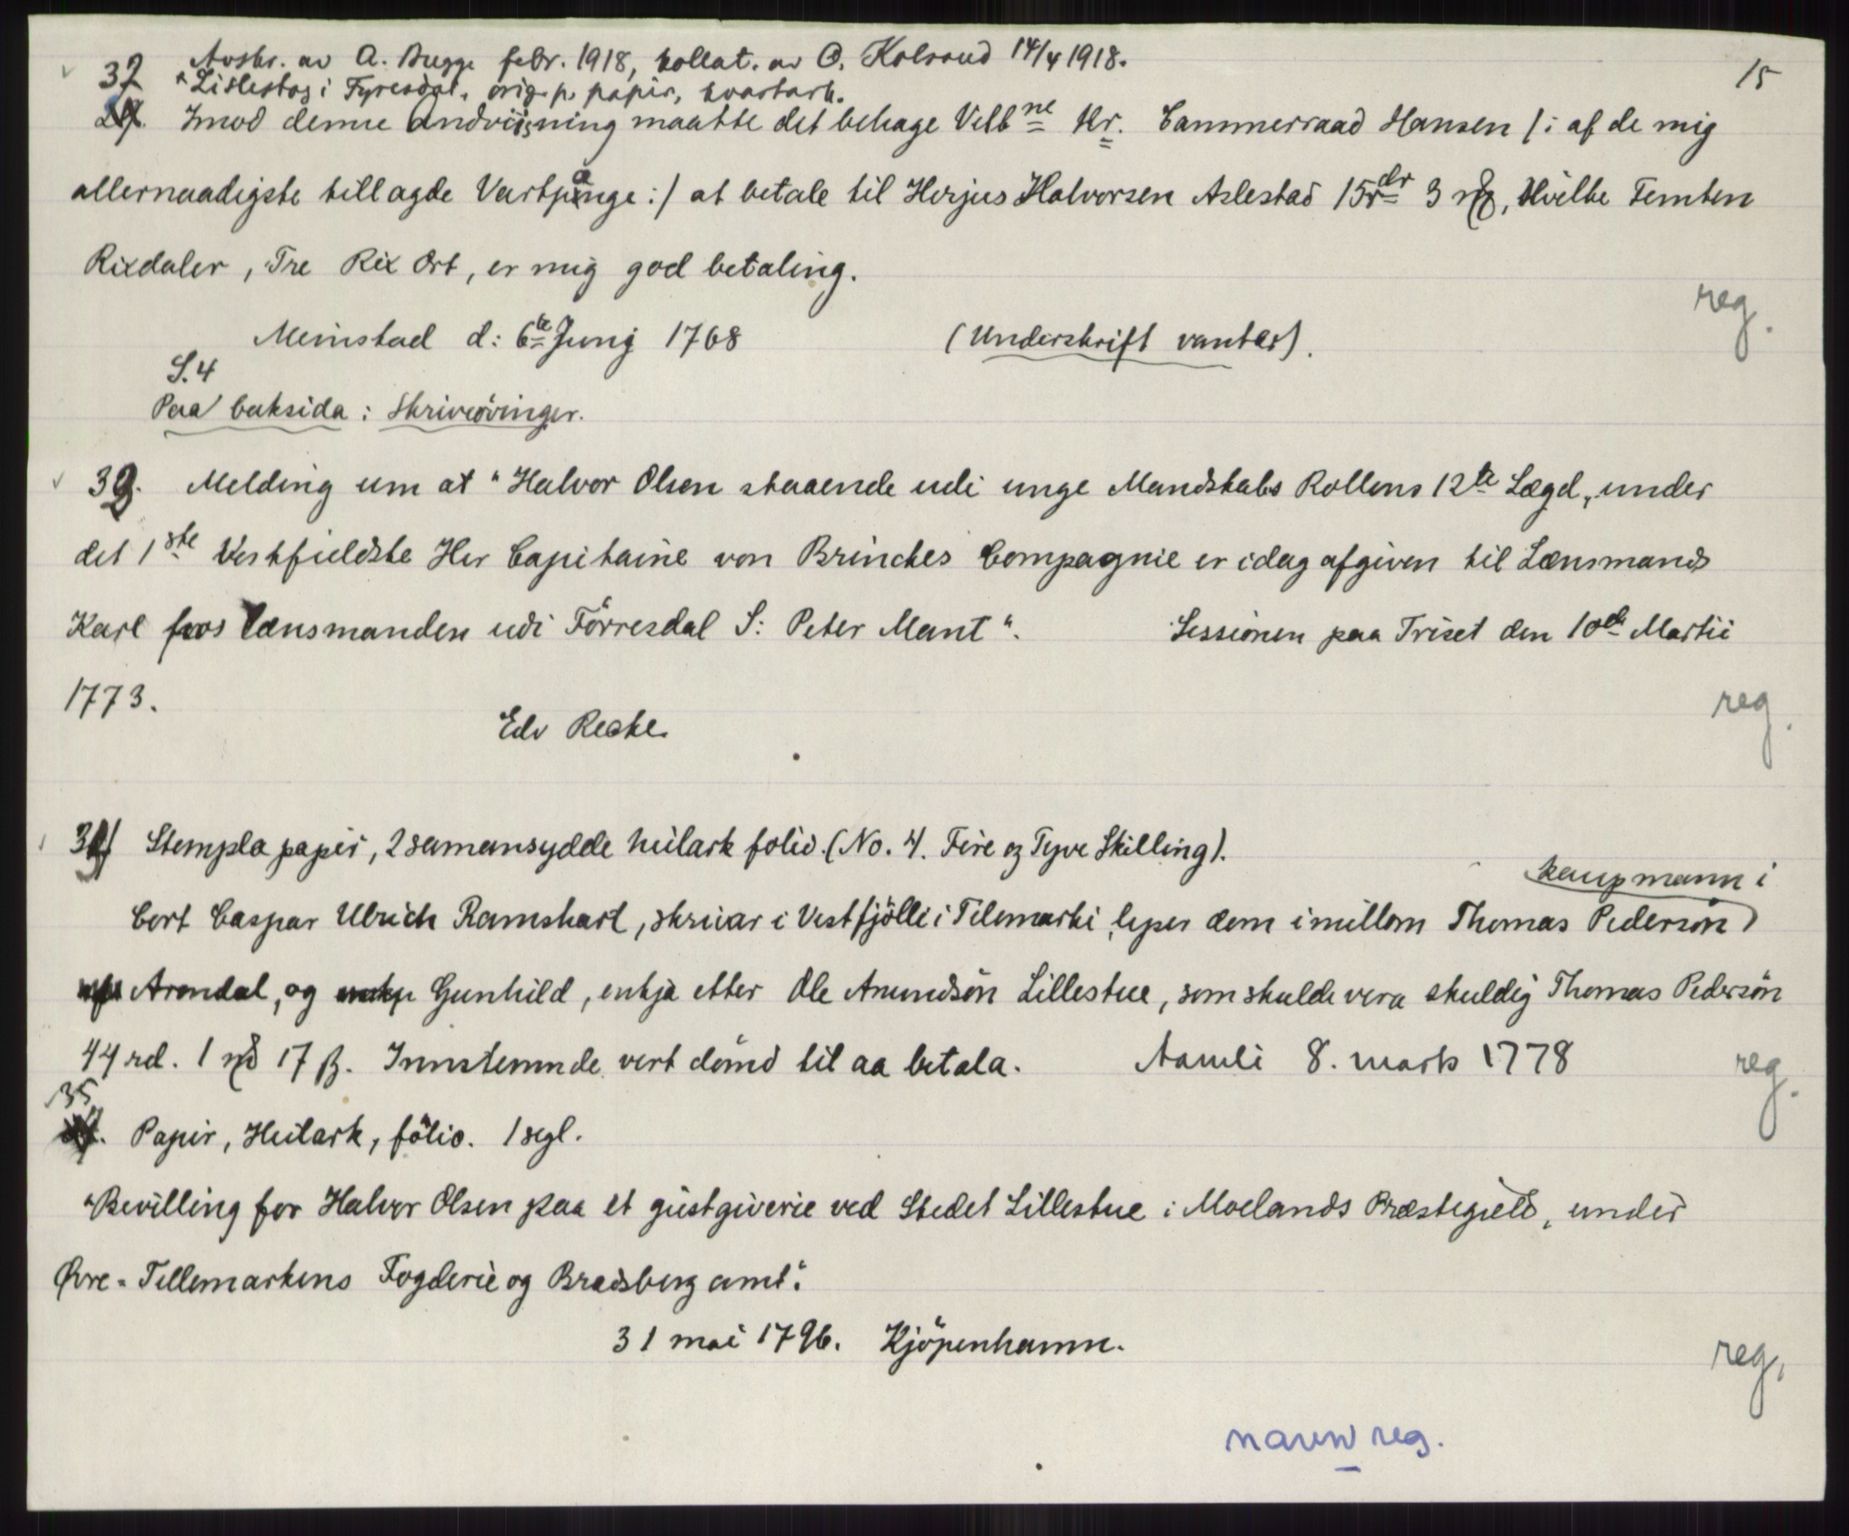 15
Avskr. av A. Bugge febr. 1918, kollat. av O. Kolsrud 14/4 1918.
32 Lillestog i Fyresdal. orig. p. papir, kvartark.
Imod denne Andviisning maatte det behage Velb ne Hr. Cammerraad Hansen /: af de mig
allernaadigste tillagde Vartpænge :/ at betale til Herjus Halvorsen Aslestad 15 rdr 3 , Hvilke Femten
Rixdaler, Tre Rix Ort, er mig god betaling.
reg.
Meinstad d: 6te Junij 1768 (Underskrift vantar).
S. 4
Paa baksida: Skriveövingar.
33. Melding um at "Halvor Olsen staaende udi unge Mandskabs Rollens 12te Lægd, under
det 1ste Vestfieldske Her Capitaine von Brinckes Compagnie er idag afgiven til Lænsmands
Karl hos Lænsmanden udi Förresdal S: Peter Mant". Sessionen paa Triset den 10de Martii
1773. reg.
Edv Recke.
34 Stempla papir, 2 samansydde heilark folio. (No. 4. Fire og Tyve Skilling).
kaupmann i
Cort Caspar Ulrich Ramshart, skrivar i Vestfjölle i Tilemarki, leper dom imillom Thomas Pedersön
Arendal, og Gunhild, enkja etter Ole Anundsön Lillestue, som skulde vera skuldig Thomas Pedersön
44 rd. 1 17 ß. Innstemnde vert dömd til aa betala. Aamli 8. mars 1778 reg.
35
Papir, Heilark, folio. 1 segl.
"Bevilling for Halvor Olsen paa et giestgiverie ved Stedet Lillestue i Moelands Præstegield, under
Øvre-Tellemarkens Fogderie og Bradsberg amt".
31 mai 1796. Kjöpenhamn.
reg.
navn reg.